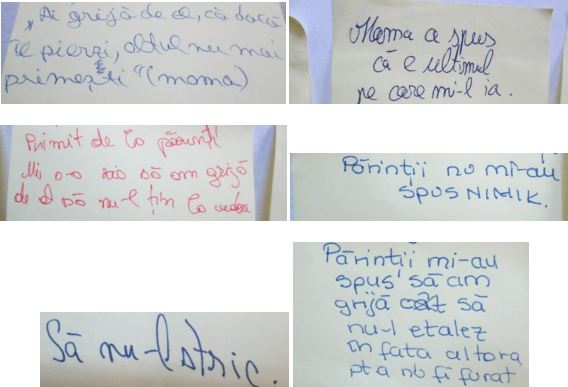 „Ai grijă de el, că dacă
îl pierzi, altul nu mai
primești“ (mama)
Mama a spus
că e ultimul
pe care mi-l ia.
Primit de la părinți
Mi s-a zis să am grijă
de el să nu-l țin la vedere
Părinții nu mi-au
spus NIMIK.
Să nu-l stric.
Părinții mi-au
spus să am
grijă să
nu-l etalez
în fata altora
pt a nb fi furat